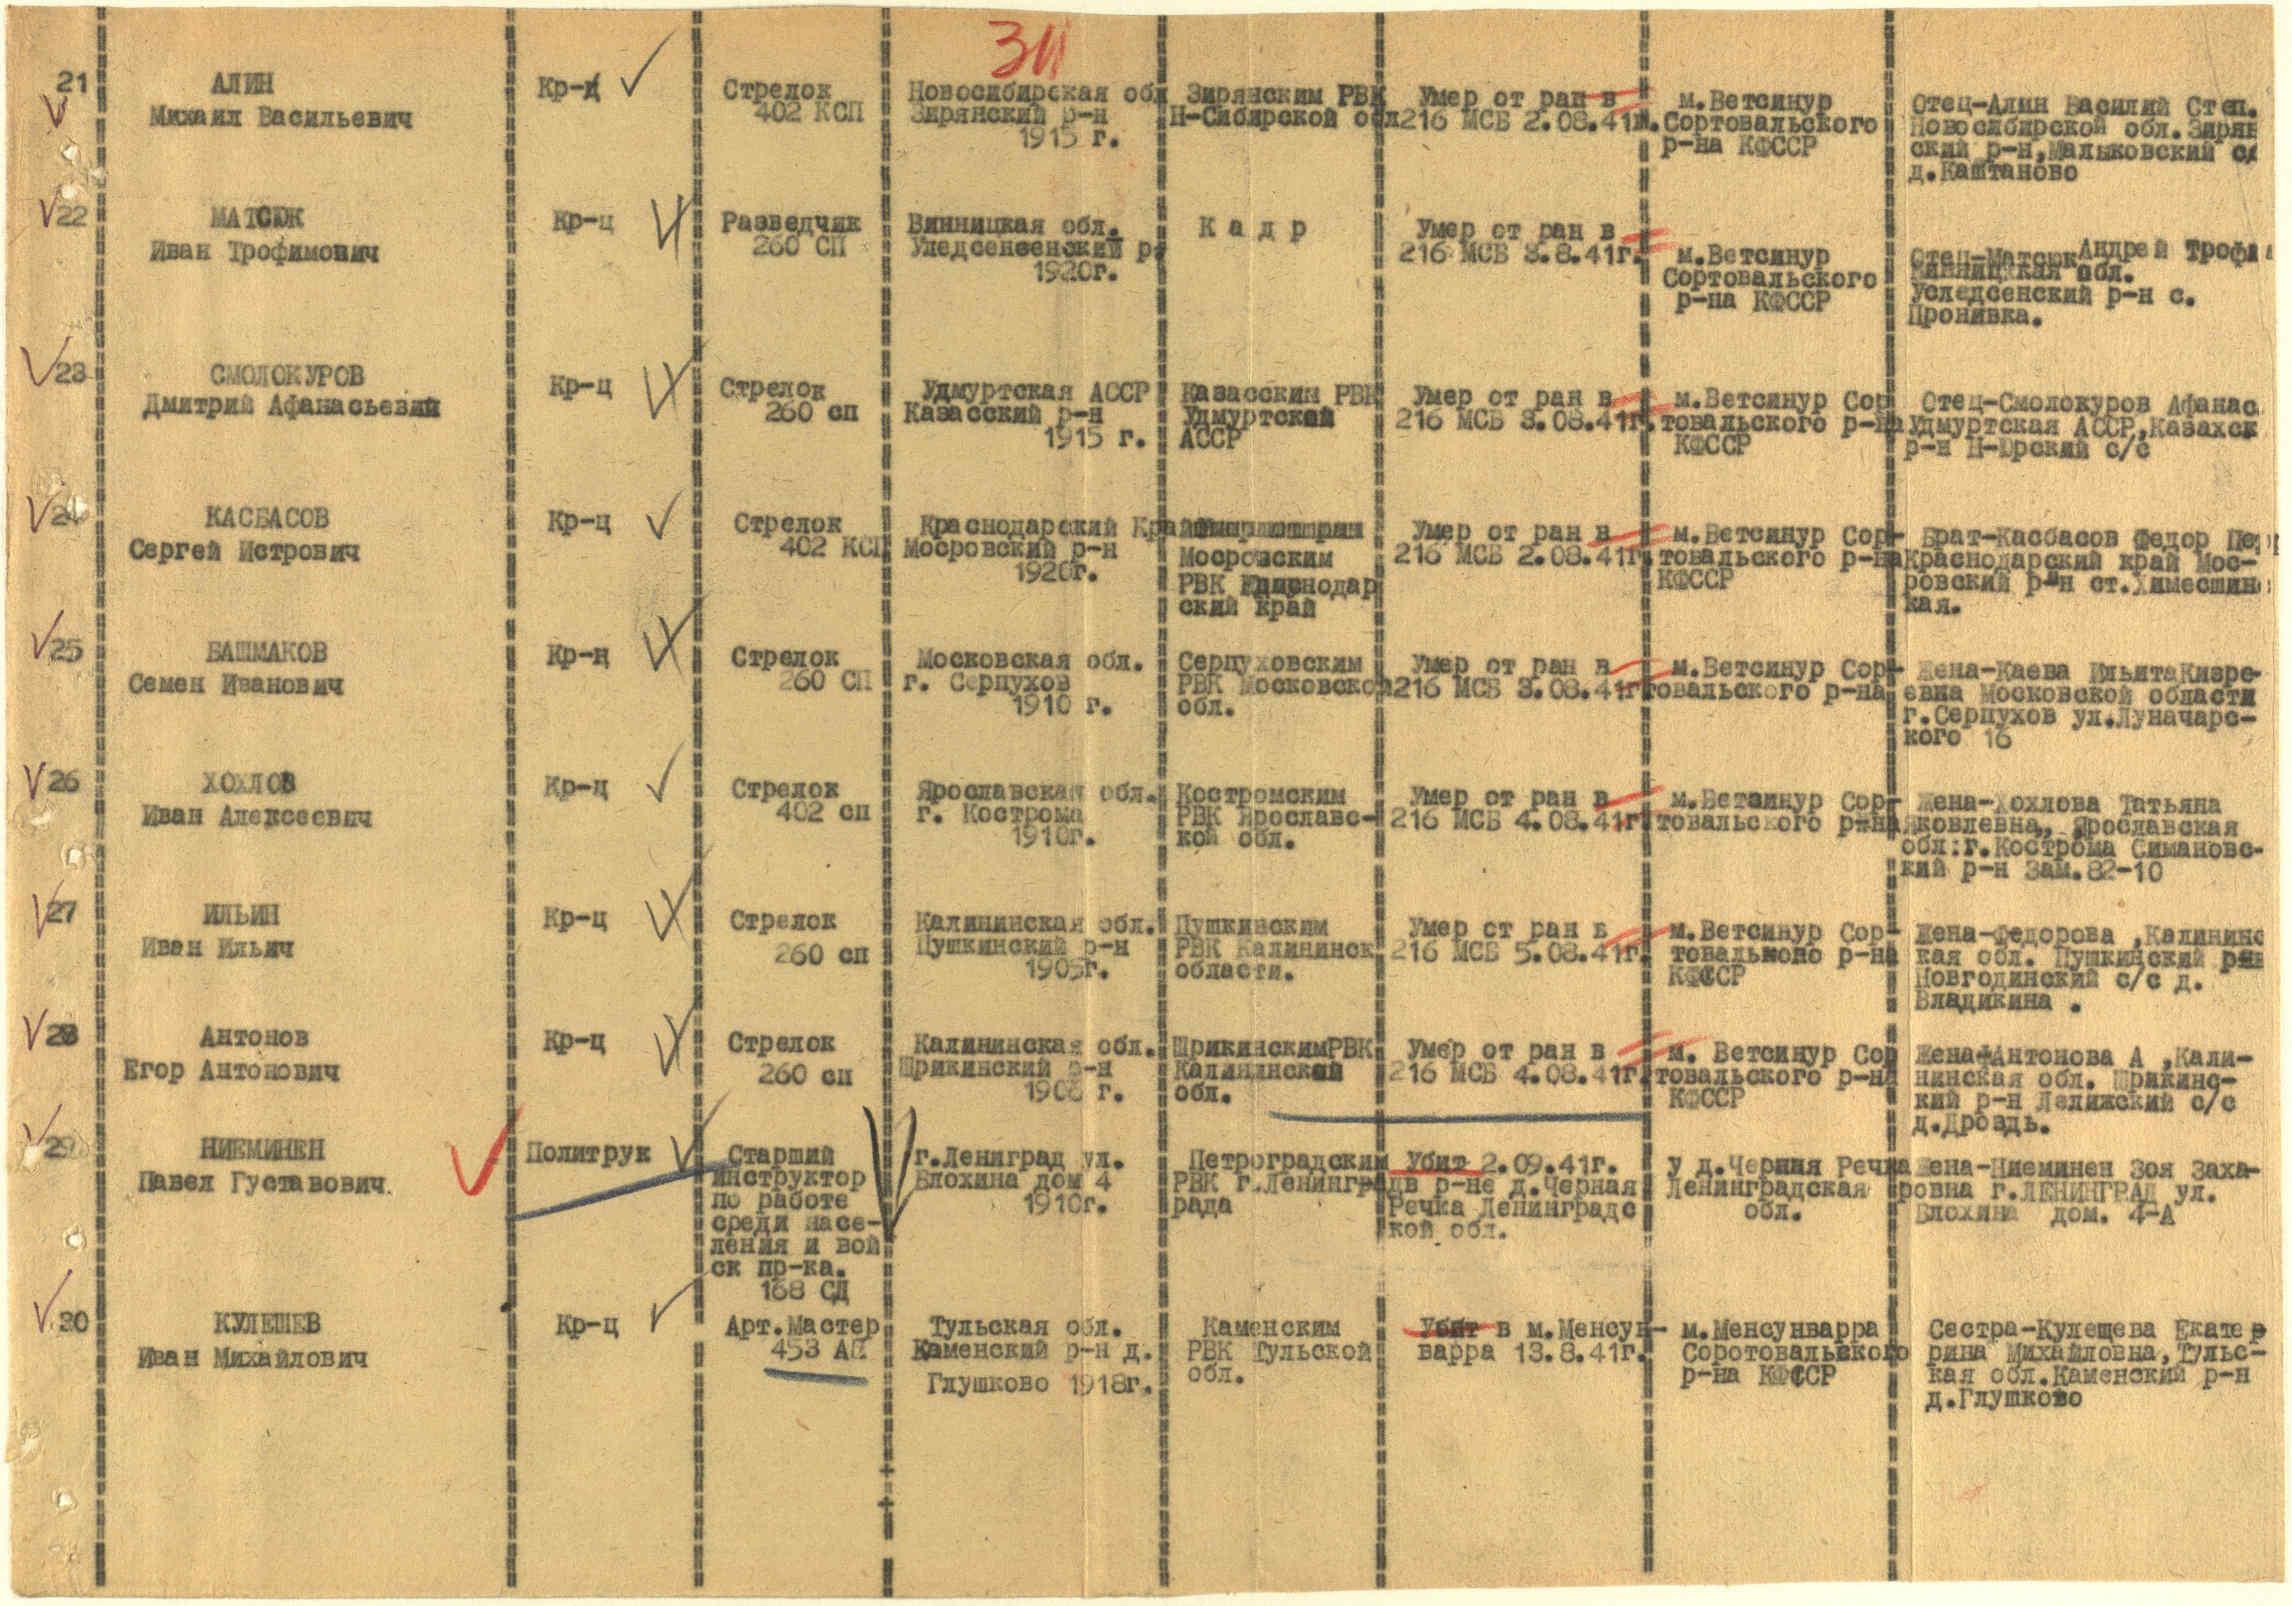 31
21
АЛИН
Михаил Васильевич
Кр-ц
Стрелок
402 КСП
Новосибирская обл
Зирянский р-н
1915 г.
Зирянским РВК
Н-Сибирской обл
Умер от ран в
216 МСБ 2.08.41г.
м.Ветсинур
Сортовальского
р-на КФССР
Отец-Алин Василий Степ.
Новосибирской обл.Зирян
ский р-н,Малыковский с/
д.Каштаново
22
МАТСЮК
Иван Трофимович
Кр-ц
Разведчик
260 СП
Винницкая обл.
Уледсенсенский р.
1920г.
К а д р
Умер от ран в
216 МСБ 3.8.41г.
м.Ветсинур
Сортовальского
р-на КФССР
Отец-Матсюк Андрей Трофи
Винницкая обл.
Уследсенский р-н с.
Пронивка.
23
СМОЛОКУРОВ
Дмитрий Афанасьевий
Кр-ц
Стрелок
260 сп
Удмуртская АССР
Казасский р-н
1915 г.
Казасским РВК
Удмуртской
АССР
Умер от ран в
216 МСБ 3.08.41г.
м.Ветсинур Сор
товальского р-на
КФССР
Отец-Смолокуров Афанас
Удмуртская АССР,Казахск
р-н Н-Юрский с/с
24
КАСБАСОВ
Сергей Истрович
Кр-ц
Стрелок
402 КСП
Краснодарский Край
Мосровский р-н
1920г.
Мосровским
РВК Краснодар
ский край
Умер от ран в
216 МСБ 2.08.41г.
м.Ветсинур Сор-
товальского р-на
КФССР
Брат-Касбасов Федор Пе
Краснодарский край Мос-
ровский р-н ст.Химесшинс
кая.
25
БАШМАКОВ
Семен Иванович
Кр-ц
Стрелок
260 СП
Московская обл.
г. Серпухов
1910 г.
Серпуховским
РВК Московской
обл.
Умер от ран в
216 МСБ 3.08.41г
м.Ветсинур Сор-
товальского р-на
Жена-Каева Ильита Кизре-
евна Московской области
г.Серпухов ул.Луначарс-
кого 16
26
ХОХЛОВ
Иван Алексеевич
Кр-ц
Стрелок
402 сп
Ярославская обл.
г. Кострома
1910г.
Костромским
РВК Ярославс-
кой обл.
Умер от ран в
216 МСБ 4.08.41г
м.Ветсинур Сор-
товальского р-на
Жена-Хохлова Татьяна
Яковлевна, Ярославская
обл:г.Кострома Симановс-
кий р-н Зам.82-10
27
ИЛЬИН
Иван Ильич
Кр-ц
Стрелок
260 сп
Калининская обл.
Пушкинский р-н
1905г.
Пушкинским
РВК Калининск
области.
Умер от ран в
216 МСБ 5.08.41г.
м.Ветсинур Сор-
товального р-на
КФССР
Жена-Федорова ,Калининс
кая обл. Пушкинский р-н
Новгодинский с/с д.
Владикина .
28
Антонов
Егор Антонович
Кр-ц
Стрелок
260 сп
Калининская обл.
Шрикинский р-н
1908 г.
ШрикинскимРВК
Калининской
обл.
Умер от ран в
216 МСБ 4.08.41г.
м. Ветсинур Сор
товальского р-на
КФССР
Жена-Антонова А ,Кали-
нинская обл. Шрикинс-
кий р-н Лелижский с/с
д.Дроздь.
29
НИЕМИНЕН
Павел Густавович.
Политрук
Старший
инструктор
по работе
среди насе-
ления и вой
ск пр-ка.
168 СД
г.Лениград ул.
Блохина дом 4
1910г.
Петроградским
РВК г.Ленинг
рада
Убит 2.09.41г.
в р-не д.Черная
Речка Ленинградс
кой обл.
у д.Черная Речка
Ленинградская
обл.
Жена-Ниеминен Зоя Заха-
ровна г.ЛЕНИНГРАД ул.
Блохина дом. 4-А
30
КУЛЕШЕВ
Иван Михайлович
Кр-ц
Арт.Мастер
453 АП
Тульская обл.
Каменский р-н д.
Глушково 1918г.
Каменским
РВК Тульской
обл.
Убит в м.Менсун-
варра 13.8.41г.
м.Менсунварра
Соротовальского
р-на КФССР
Сестра-Кулещева Екатер
рина Михайловна,Тульс-
кая обл.Каменский р-н
д.Глушково